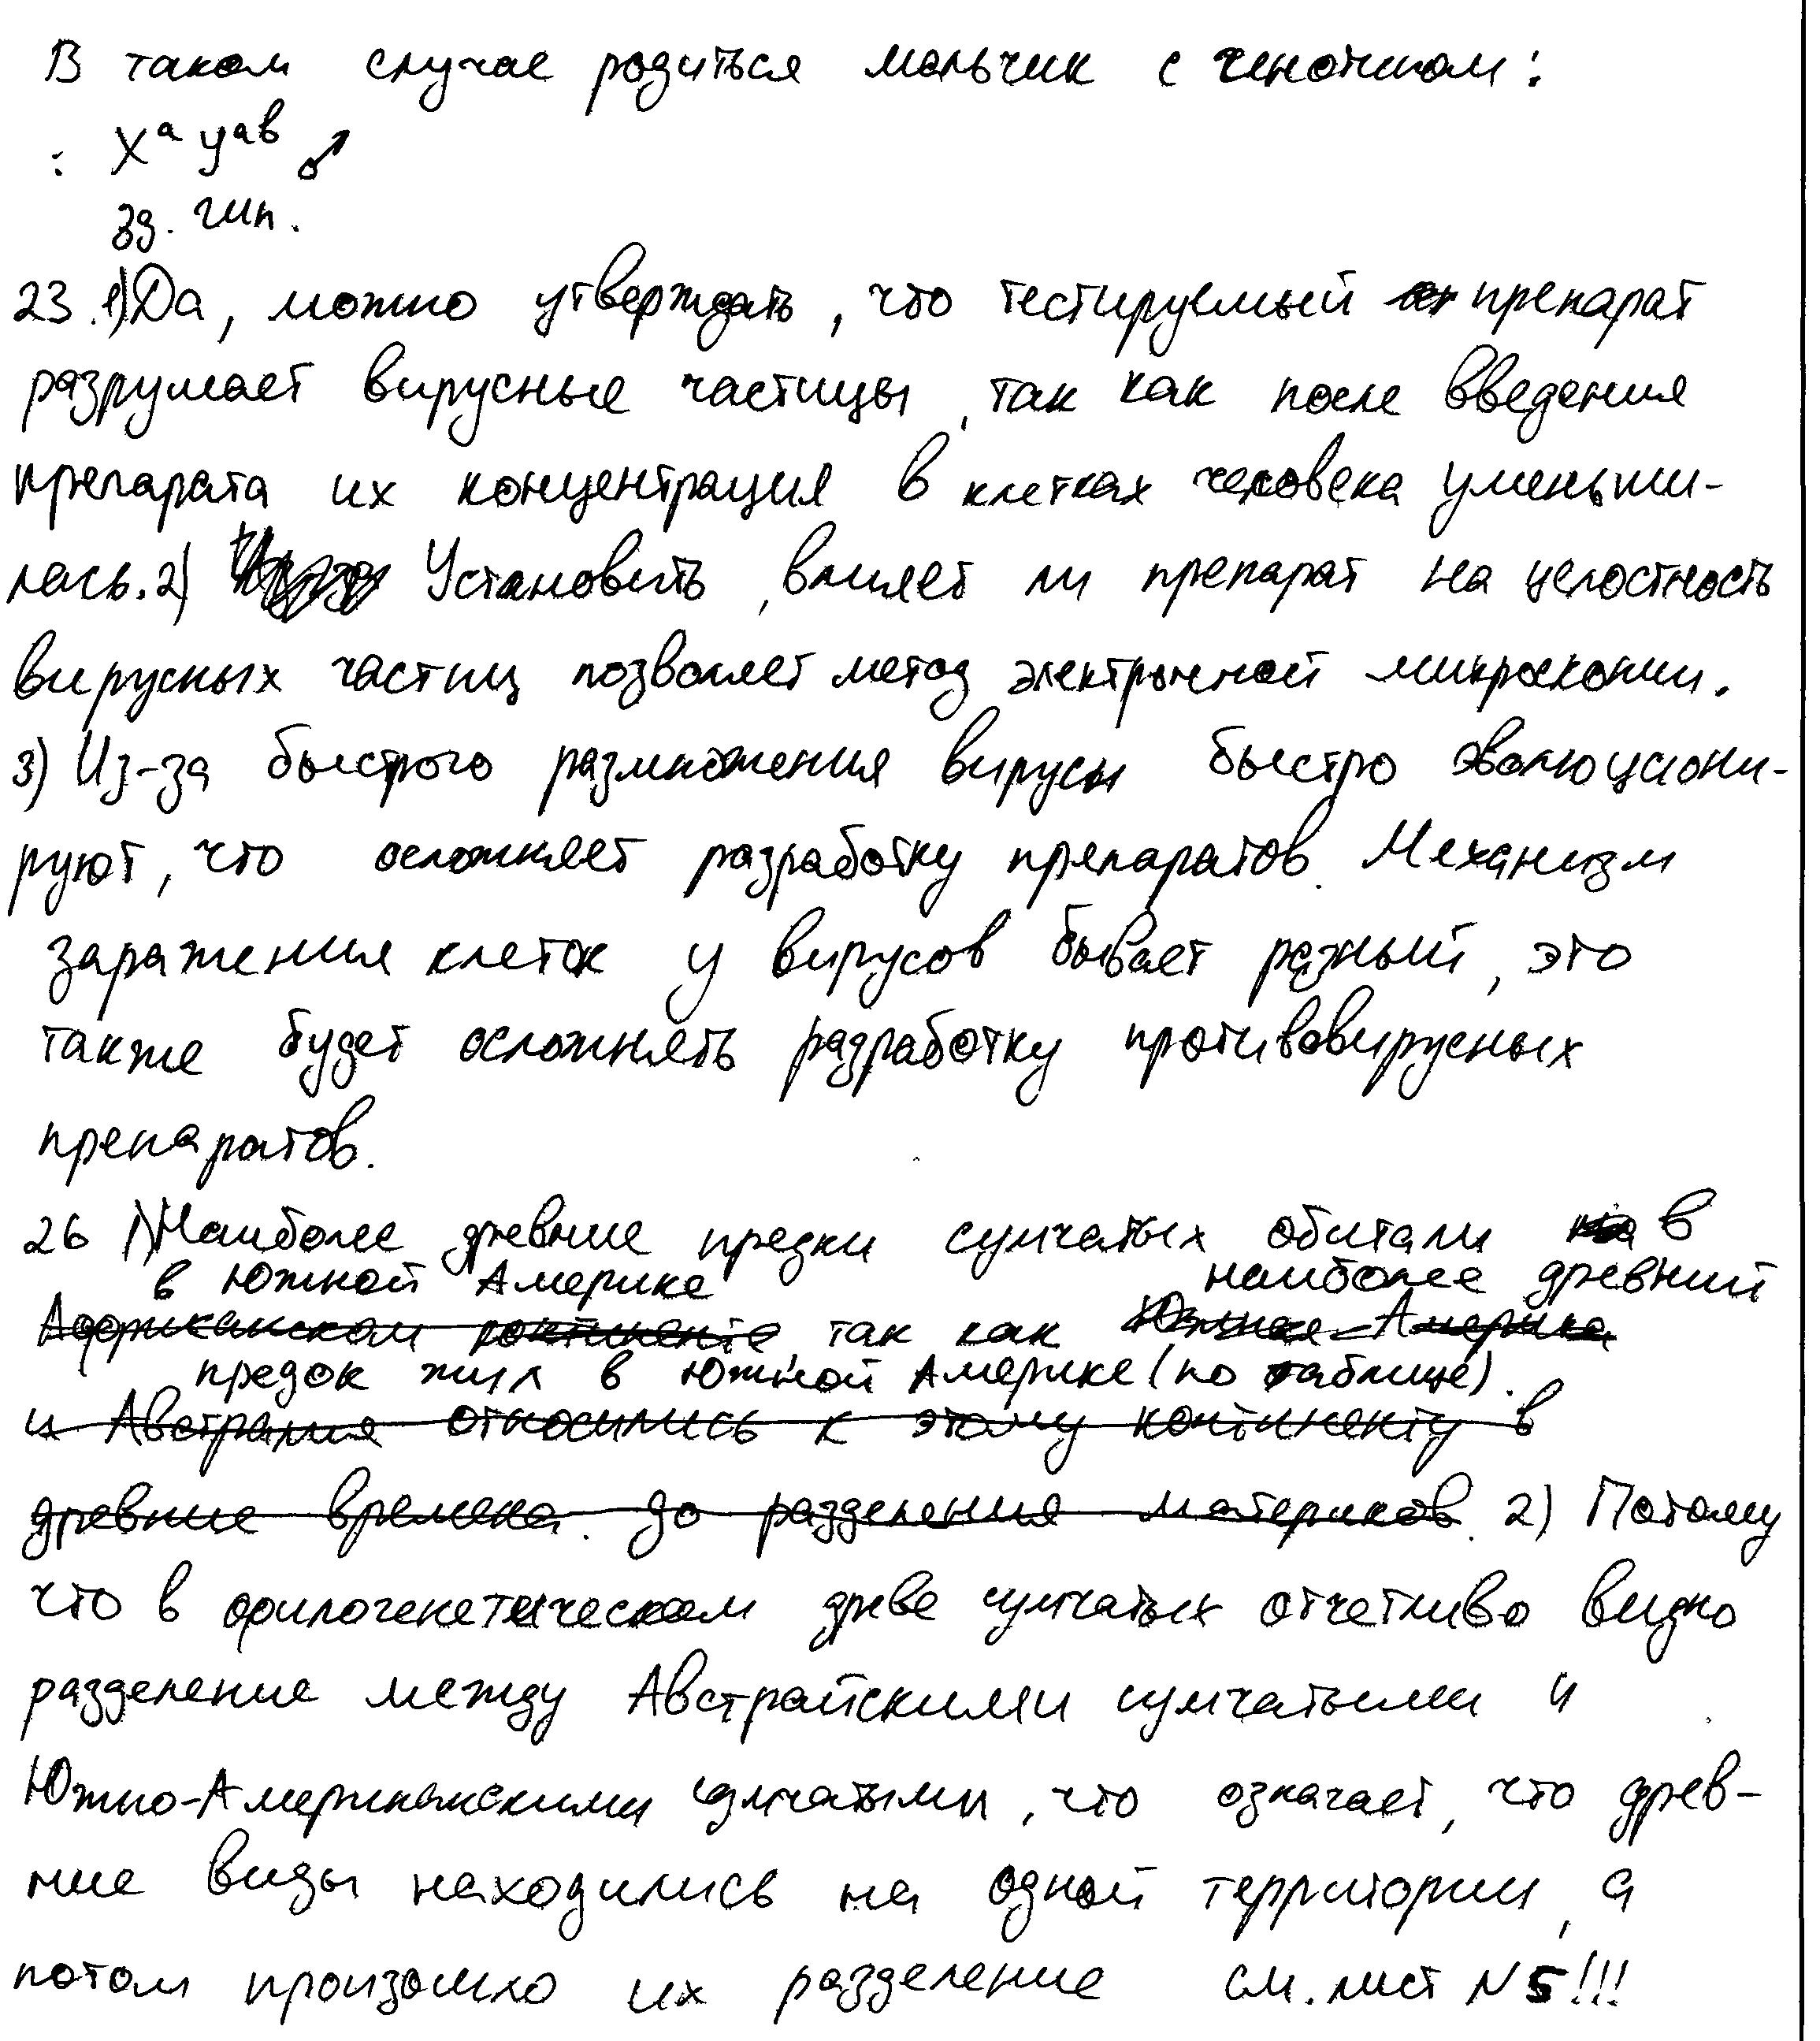 В таком случае родиться мальчик с генотипом:
: Xᵃ Yᵃᵇ ♂
зд. гип.
23. 1) Да, можно утверждать, что тестируемый препарат
разрушает вирусные частицы, так как после введения
препарата их концентрация в клетках человека уменьши-
лась. 2) Установить, влияет ли препарат на целостность
вирусных частиц позволяет метод электронной микроскопии.
3) Из-за быстрого размножения вирусы быстро эволюциони-
руют, что осложняет разработку препаратов. Механизм
заражения клеток у вирусов бывает разный, это
также будет осложнять разработку противовирусных
препаратов.
26 1) Наиболее древние предки сумчатых обитали в
в Южной Америке наиболее древний
Африканском континенте, так как Южная Америка
предок жил в Южной Америке (по таблице).
и Австралия относились к этому континенту в
древние времена. до разделения материков. 2) Потому
что в филогенетическом древе сумчатых отчетливо видно
разделение между Австрайскими сумчатыми и
Южно-Американскими сумчатыми, что означает, что древ-
ние виды находились на одной территории, а
потом произошло их разделение см. лист N 5!!!